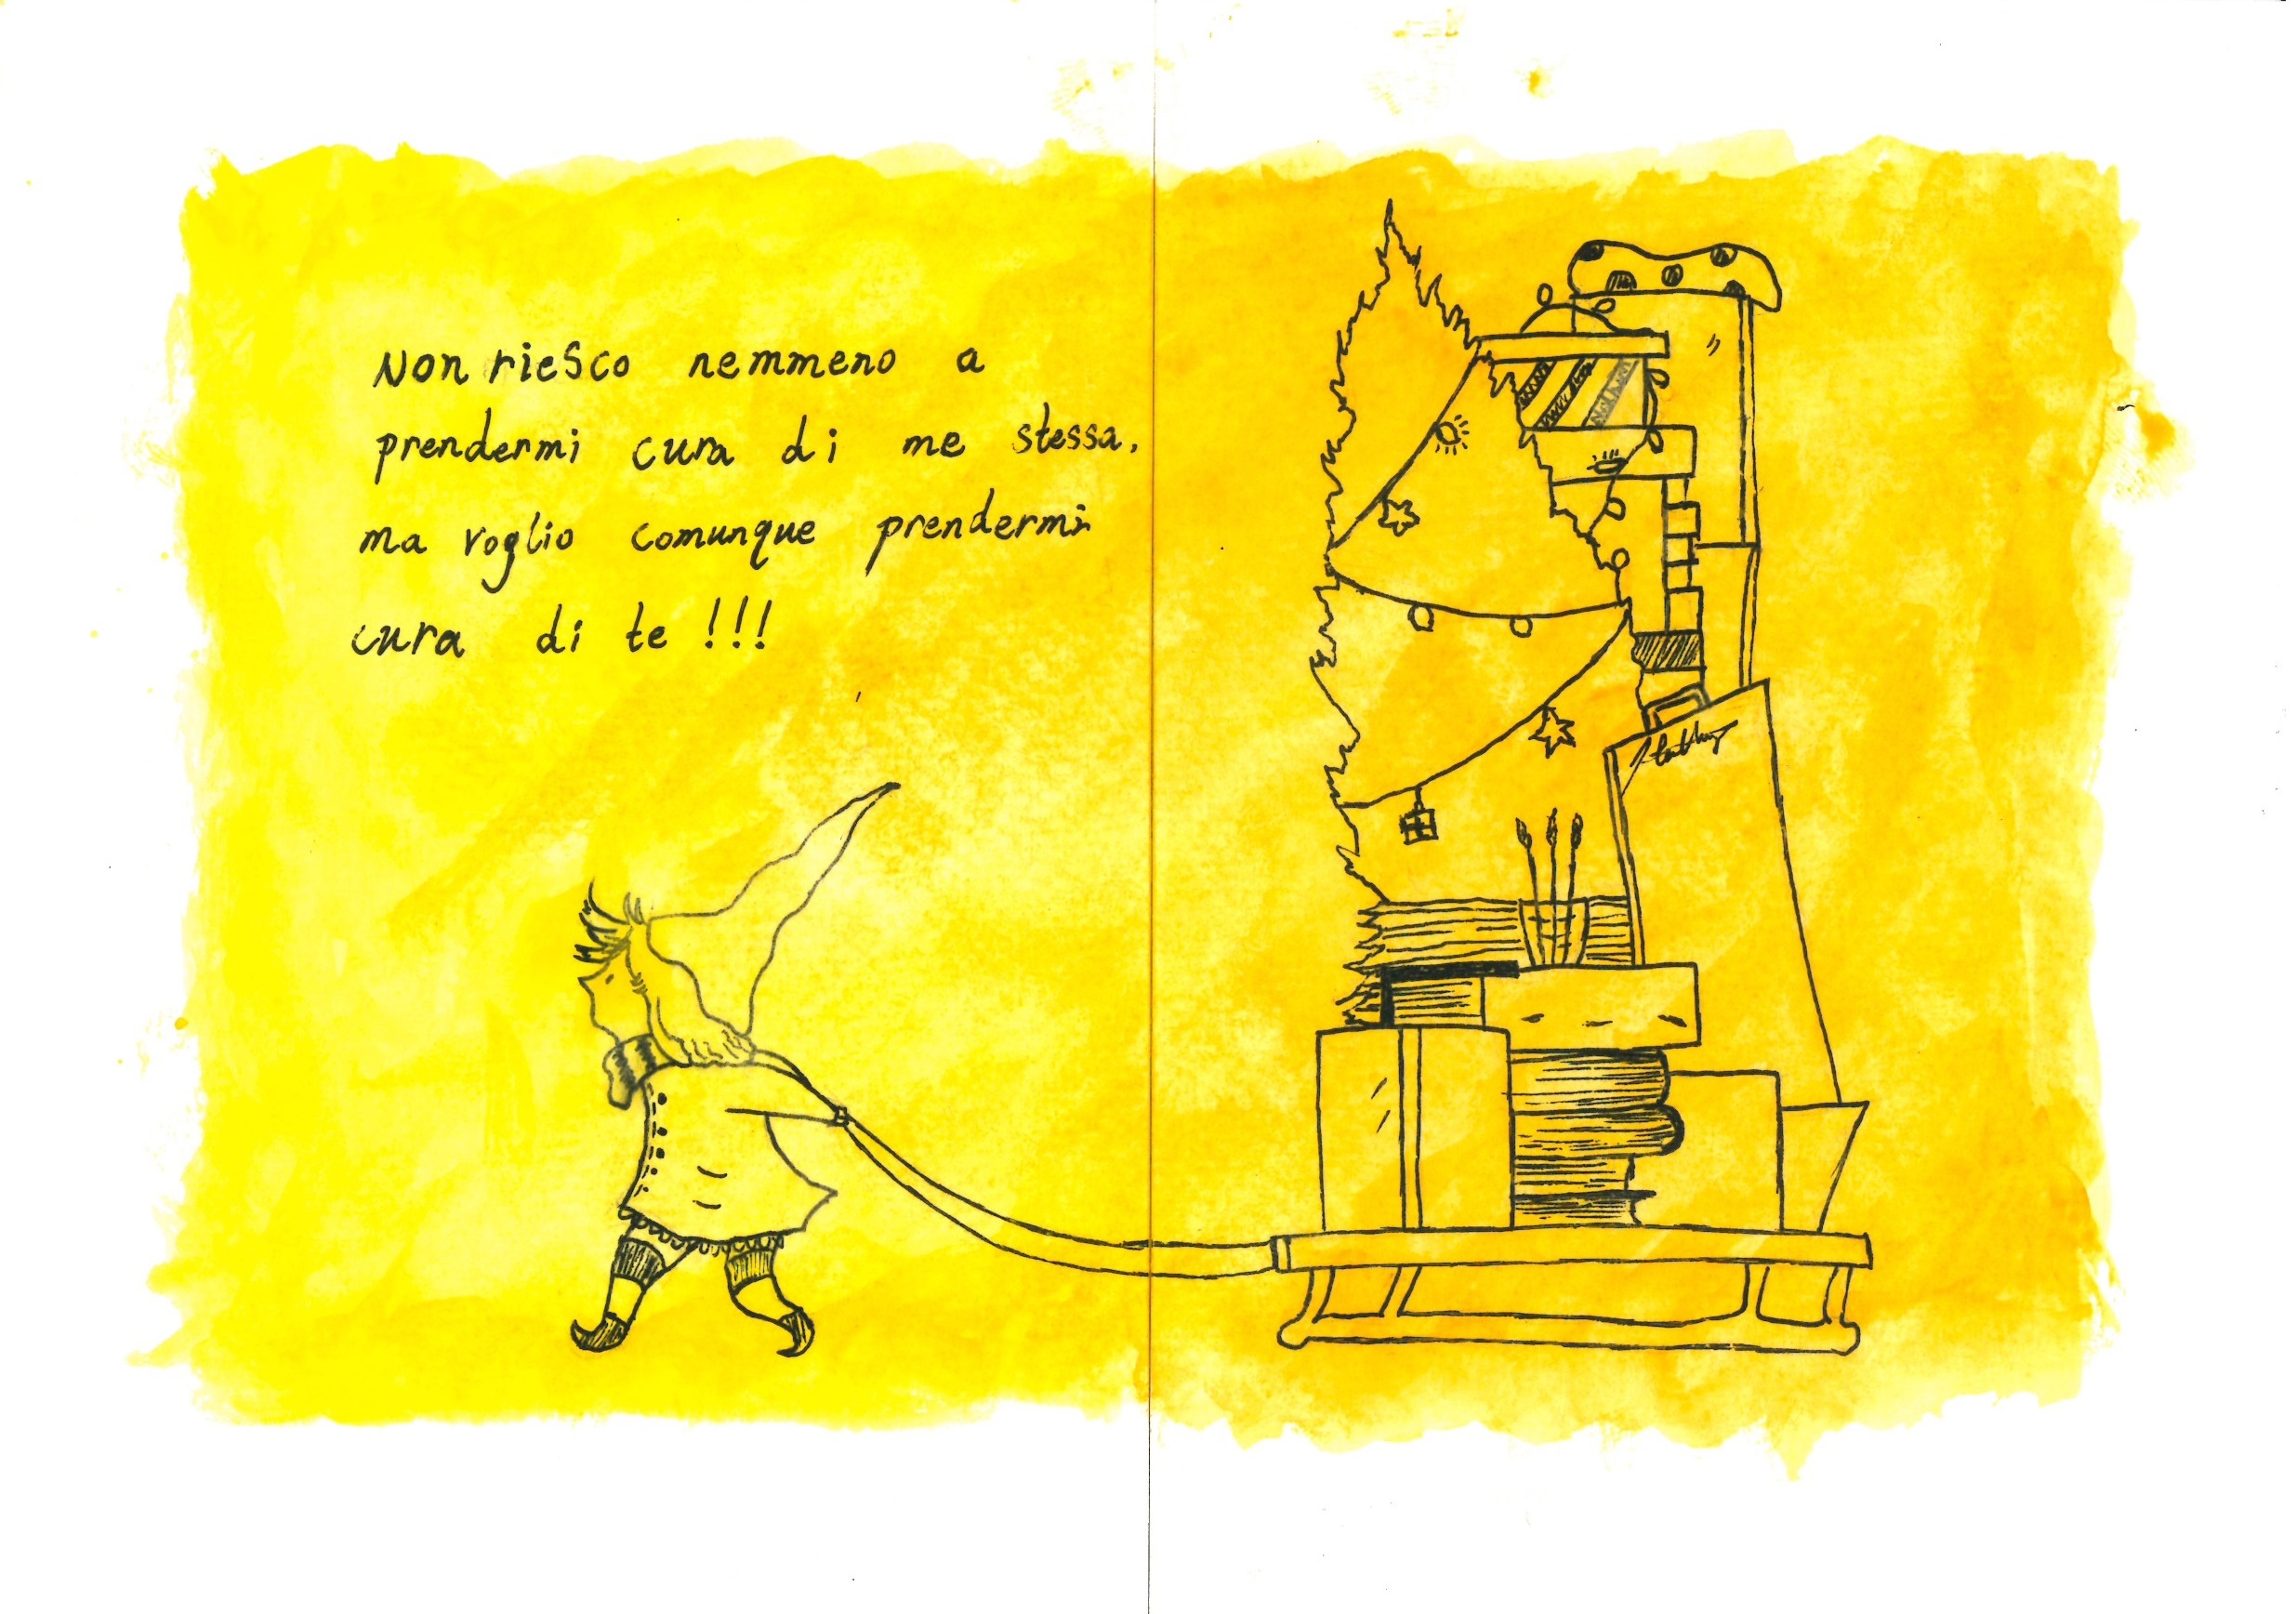 Non riesco nemmeno a
prendermi cura di me stessa,
ma voglio comunque prendermi
cura di te!!!